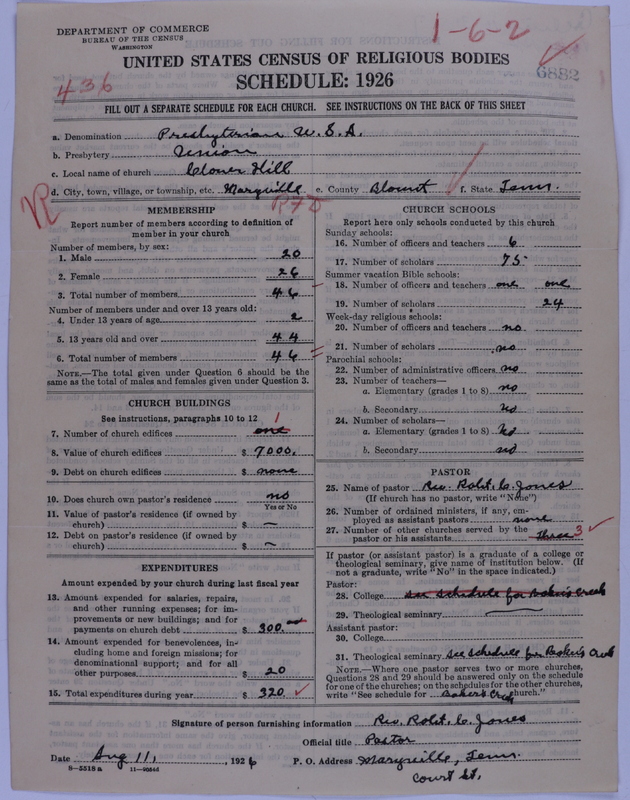 DEPARTMENT OF COMMERCE
BUREAU OF THE CENSUS
WASHINGTON
1-6-2
UNITED STATES CENSUS OF RELIGIOUS BODIES
SCHEDULE: 1926
436
6882
FILL OUT A SEPARATE SCHEDULE FOR EACH CHURCH. SEE INSTRUCTIONS ON THE BACK OF THIS SHEET
a. Denomination Presbyterian U.S.A.
b. Presbytery Union
c. Local name of church Clover Hill
d. City, town, village, or township, etc. Maryville e. County Blount f. State Tenn.
R
RFD
MEMBERSHIP
Report number of members according to definition of
member in your church
Number of members, by sex:
1. Male 20
2. Female 26
3. Total number of members 46
Number of members under and over 13 years old:
4. Under 13 years of age 2
5. 13 years old and over 44
6. Total number of members 46
NOTE.—The total given under Question 6 should be
same as the total of males and females given under Question 3.
CHURCH BUILDINGS
See instructions, paragraphs 10 to 12
7. Number of church edifices one 1
8. Value of church edifices $ 7000.
9. Debt on church edifices $ none
10. Does church own pastor's residence no
Yes or No
11. Value of pastor's residence (if owned by
church) $ —
12. Debt on pastor's residence (if owned by
church) $ —
EXPENDITURES
Amount expended by your church during last fiscal year
13. Amount expended for salaries, repairs,
and other running expenses; for im-
provements or new buildings; and for
payments on church debt $ 300.
14. Amount expended for benevolences, in-
cluding home and foreign missions; for
denominational support; and for all
other purposes $ 20
15. Total expenditures during year $ 320
CHURCH SCHOOLS
Report here only schools conducted by this church
Sunday schools:
16. Number of officers and teachers 6
17. Number of scholars 75
Summer vacation Bible schools:
18. Number of officers and teachers one one
19. Number of scholars 24
Week-day religious schools:
20. Number of officers and teachers no
21. Number of scholars no
Parochial schools:
22. Number of administrative officers no
23. Number of teachers—
a. Elementary (grades 1 to 8) no
b. Secondary no
24. Number of scholars—
a. Elementary (grades 1 to 8) no
b. Secondary no
PASTOR
25. Name of pastor Rev. Robt. C. Jones
(If church has no pastor, write "None")
26. Number of ordained ministers, if any, em-
ployed as assistant pastors none
27. Number of other churches served by the
pastor or his assistants three 3
If pastor (or assistant pastor) is a graduate of a college or
theological seminary, give name of institution below. (If
not a graduate, write "No" in the space indicated.)
Pastor:
28. College see schedule for Baker's Creek
29. Theological seminary
Assistant pastor:
30. College
31. Theological seminary See schedule for Baker's Creek
NOTE.—Where one pastor serves two or more churches,
Questions 28 and 29 should be answered only on the schedule
for one of the churches; on the schedules for the other churches,
write "See schedule for Baker's Creek church."
Signature of person furnishing information Rev. Robt. C. Jones
Official title Pastor
Date Aug 11, 1926 P. O. Address Maryville, Tenn.
8—5518 a
Court St.